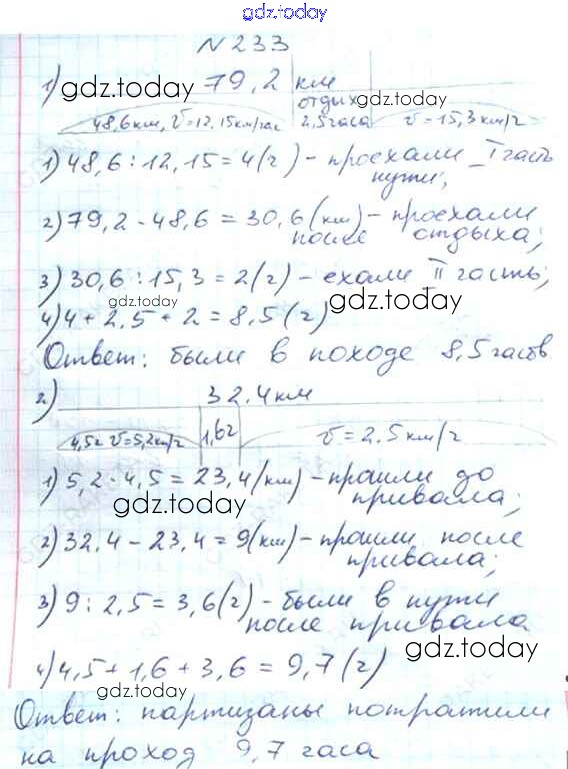 gdz.today
N 233
1) gdz.today 79,2 км
отдых gdz.today
48,6 км, V=12,15 км/час 2,5 часа V=15,3 км/ч
1) 48,6 : 12,15 = 4 (ч) - проехали I часть
пути;
2) 79,2 - 48,6 = 30,6 (км) - проехали
после отдыха;
3) 30,6 : 15,3 = 2 (ч) - ехали II часть;
gdz.today gdz.today
4) 4 + 2,5 + 2 = 8,5 (ч)
Ответ: были в походе 8,5 часов
2) 32,4 км
4,5ч V=5,2км/ч 1,6ч V=2,5 км/ч
1) 5,2 · 4,5 = 23,4 (км) - прошли до
gdz.today привала;
2) 32,4 - 23,4 = 9 (км) - прошли после
привала;
3) 9 : 2,5 = 3,6 (ч) - были в пути
gdz.today после привала
4) 4,5 + 1,6 + 3,6 = 9,7 (ч)
gdz.today
Ответ: партизаны потратили
на проход 9,7 часа